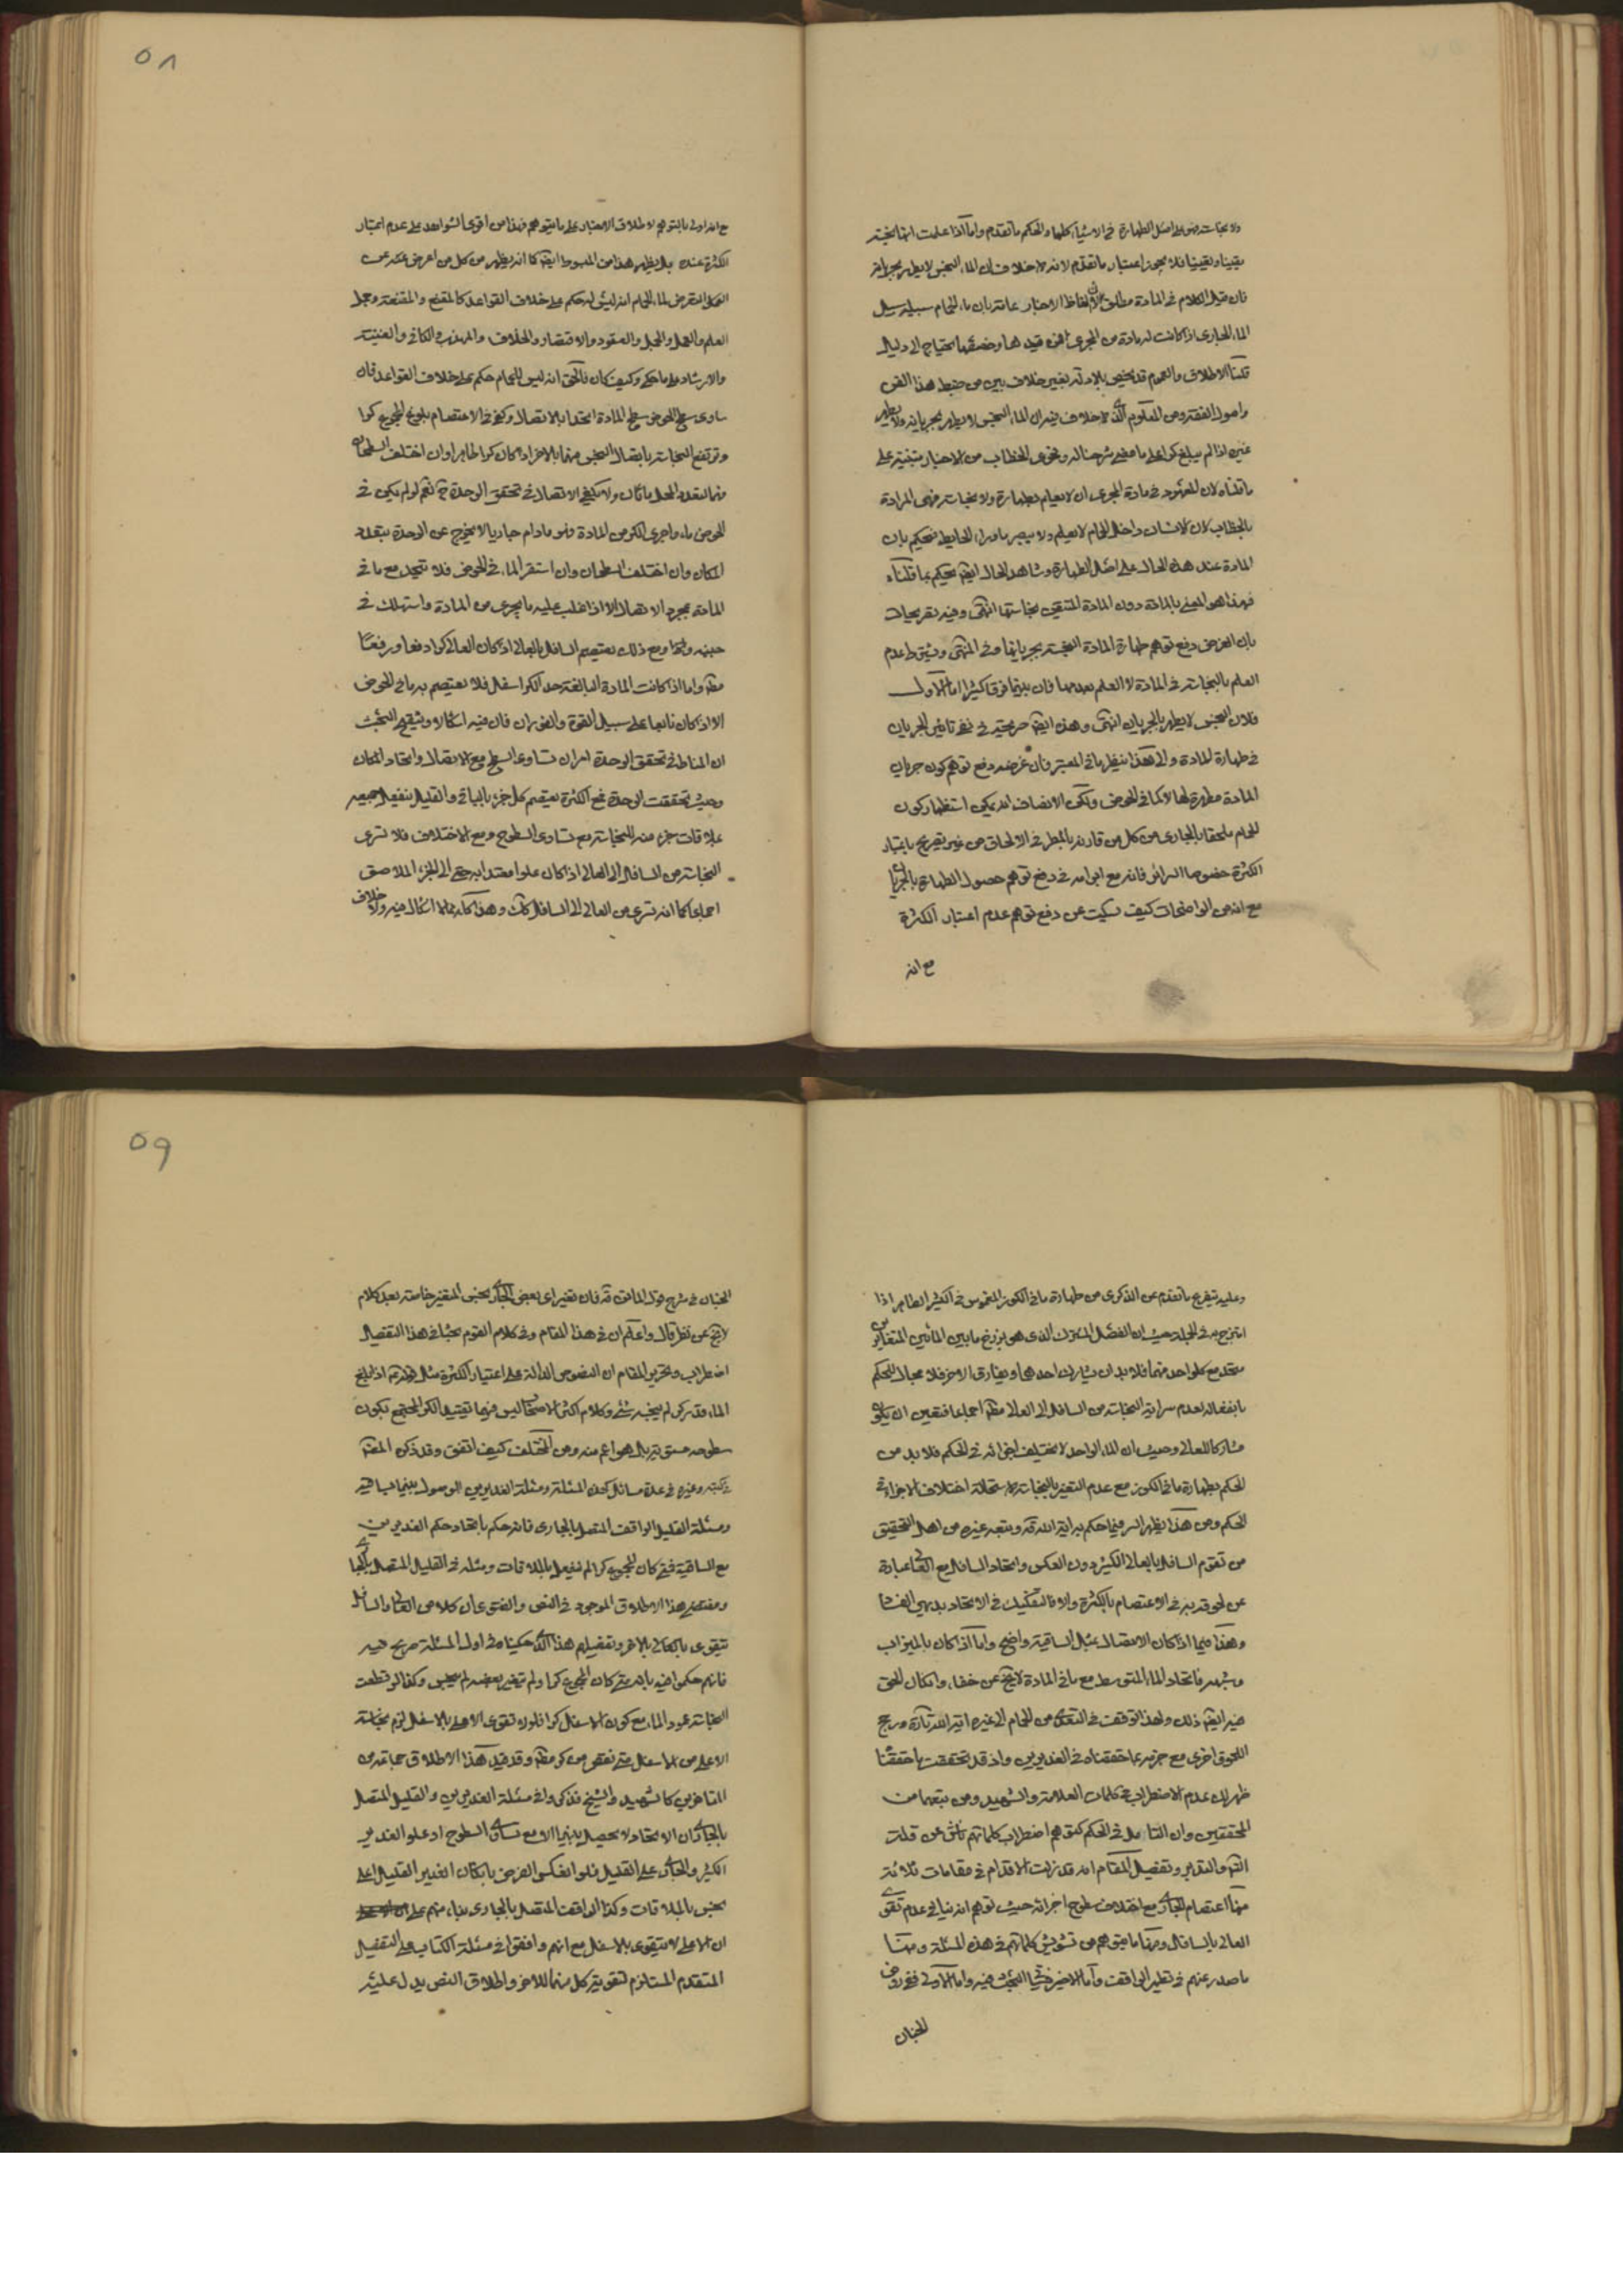 ولا نجاست فهو على اصل الطهارة في الاشياء كلها والحكم ما تقدم واما اذا علمت انها نجسة
يقينا ويقينا فلا يجوز اعتبار ما تقدم لانه لا خلاف ان الماء النجس لا يطهر بجريانه
فان قيل الكلام في المادة مطلق لان الفاظ الاخبار عامة بان ماء الحمام سبيله سبيل
الماء الجاري اذا كانت له مادة من المجرى فمن قيدها وخصها يحتاج الى دليل
قلنا الاطلاق والعموم قد يخص بالادلة بغير خلاف بين من ضبط هذا الفن
واصول الفقه ومن المعلوم الذي لا خلاف فيه ان الماء النجس لا يطهر بجريانه ولا يطهر
غيره اذا لم يبلغ كرا على ما مضى شرحنا له وفحوى الخطاب من الاخبار منبئة على
ما قلناه لان المعهود في مادة المجرى ان لا يعلم بطهارة ولا نجاسة فهي المرادة
بالخطاب لان الانسان داخل الحمام لا يعلم ولا يبصر ما وراء الحايط فيحكم بان
المادة عند هذه الحال على اصل الطهارة وشاهد الحال ايضا يحكم بما قلناه
فهذا هو المعنى بالمادة دون المادة المتيقن نجاستها انتهى وفيه تصريحات
بان الغرض دفع توهم طهارة المادة النجسة بجريانها وفي المنتهى ويشترط عدم
العلم بالنجاسة في المادة لا العلم بعدمها فان بينهما فرقا كثيرا اما الاول
فلان النجس لا يطهر بالجريان انتهى وهذه ايضا صريحة في نفي تاثير الجريان
في طهارة المادة والى هذا ينظر ما في المعتبر فان غرضه دفع توهم كون جريان
المادة مطهرة لها لا لما في الحوض ولكن الانصاف انه يمكن استظهار كون
الحمام ملحقا بالجاري من كل من قارنه بالمطر في الالحاق من غير تصريح باعتبار
الكثرة خصوصا السرائر فانه مع ابرامه في دفع توهم حصول الطهارة بالجريان
مع انه من الواضحات كيف سكت عن دفع توهم عدم اعتبار الكثرة
مع انه
٥٨
مع انه اولى بالتوهم لاطلاق الاعتبار على ما يتوهم فهذا من اقوى الشواهد على عدم اعتبار
الكثرة عنده بل يظهر هذا من المبسوط ايضا كما انه يظهر من كل من اعرض عنه عن
التعرض لماء الحمام انه ليس له حكم على خلاف القواعد كالمقنع والمقنعة وجمل
العلم والعمل والجمل والعقود والاقتصاد والخلاف والمهذب والكافي والغنية
والارشاد على ما حكي وكيف كان فالحق انه ليس للحمام حكم على خلاف القواعد فان
ساوى سطح الحوض سطح المادة اتحدا بالاتصال وكفى في الاعتصام بلوغ المجموع كرا
وترتفع النجاسة باتصال النجس منهما بالاخر اذا كان كرا طاهرا وان اختلف السطحان
فيهما لتعدد المحل والمكان ولا يكفي الاتصال في تحقق الوحدة ح نعم لو لم يكن في
الحوض ماء واجرى الكر من المادة فهو ما دام جاريا لا يخرج عن الوحدة بتعدد
المكان وان اختلف السطحان وان استقر الماء في الحوض فلا تتحد مع ما في
المادة بمجرد الاتصال الا اذا غلب عليه ما يجري من المادة واستهلك في
جنبه واتحد ومع ذلك يعتصم السافل بالعالي اذا كان العالي كرا دفعا ورفعا
مطلقا واما اذا كانت المادة البالغة حد الكر اسفل فلا يعتصم به ما في الحوض
الا اذا كان نابعا على سبيل القوة والفوران فان فيه اشكالا وتنقيح البحث
ان المناط في تحقق الوحدة امران تساوي السطح مع الاتصال واتحاد المكان
وحيث تحققت الوحدة فمع الكثرة يعتصم كل جزء بالباقي والقليل ينفعل جميعه
بملاقات جزء منه للنجاسة مع تساوي السطوح ومع الاختلاف فلا تسري
النجاسة من السافل الى العالي اذا كان علوا معتدا به حتى الى الجزء الملاصق
اجماعا كما انه تسري من العالي الى السافل كذلك وهذا كله مما لا اشكال فيه ولا خلاف
وعليه يتفرع ما تقدم عن الذكرى من طهارة ما في الكوز المغموس في الكثير الطاهر اذا
امتزج به في الجملة حيث ان الفصل المشترك الذي هو برزخ ما بين المائين المتغايرين
متحد مع كل واحد منهما فلا بد ان يشارك احدهما ويفارق الاخر فلا مجال للحكم
بانفعاله لعدم سراية النجاسة من السافل الى العالي مطلقا اجماعا فتعين ان يكون
مشاركا للعالي وحيث ان الماء الواحد لا يختلف اجزائه في الحكم فلا بد من
الحكم بطهارة ما في الكوز مع عدم التغير بالنجاسة لاستحالة اختلاف الاجزاء في
الحكم ومن هذا يظهر السر فيما حكم به اية الله قه وتبعه غيره من اهل التحقيق
من تقوم السافل بالعالي الكثير دون العكس واتحاد السافل مع العالي عبارة
عن لحوقه به في الاعتصام بالكثرة والا فالتفكيك في الاتحاد بديهي الفساد
وهكذا فيما اذا كان الاتصال بمثل الساقية واضح واما اذا كان بالميزاب
وشبهه فاتحاد الماء المتوسط مع ما في المادة لا يخ عن خفاء وان كان الحق
فيه ايضا ذلك ولهذا توقف في التعدي من الحمام الى غيره اية الله تارة ورجح
اللحوق اخرى مع جزمه بما حققناه في الغديرين واذ قد تحققت ما حققنا
ظهر لك عدم الاضطراب في كلمات العلامة والشهيد ومن تبعهما من
المحققين وان التامل في الحكم كتوهم اضطراب كلماتهم ناش عن قلة
التدبر وتفصيل المقام انه قد زلت الاقدام في مقامات ثلاثة
منها اعتصام الجاري مع اختلاف سطوح اجزائه حيث توهم انه ينافي عدم تقوي
العالي بالسافل ومنها ما يتوهم من تشويش كلماتهم في هذه المسئلة ومنها
ما صدر عنهم في تطهير الواقف واما الاخير فسيأتي البحث فيه واما الاولى ففي روض
الجنان
٥٩
الجنان في شرح قول الماتن قه فان تغير اي بعض الجاري نجس المتغير خاصة بعد كلام
لا يخ عن نظر قال واعلم ان في هذا المقام وفي كلام القوم بحثا في هذا التفصيل
اضطراب وتحرير المقام ان النصوص الدالة على اعتبار الكثرة مثل قوله ع اذا بلغ
الماء قدر كر لم ينجسه شئ وكلام اكثر الاصحاب ليس فيها تقييد الكر المجتمع بكون
سطوحه مستوية بل هو اعم منه ومن المختلف كيف اتفق وقد ذكر المصنف
في كتبه وغيره في عدة مسائل كهذه المسئلة ومسئلة الغديرين الموصول بينهما بساقية
ومسئلة القليل الواقف المتصل بالجاري فانه حكم باتحاد حكم الغديرين
مع الساقية فمتى كان المجموع كرا لم ينفعل بالملاقات ومثله في القليل المتصل بالجاري
ومقتضى هذا الاطلاق الموجود في النص والفتوى ان كلا من العالي والسافل
يتقوى بالآخر وتفصيلهم هذا الذي حكيناه في اول المسئلة صريح فيه
فانهم حكموا فيه بانه متى كان المجموع كرا ولم يتغير بعضه لم ينجس وكذا لو قطعت
النجاسة عمود الماء مع كون الاسفل كرا فلولا تقوي الاعلى بالاسفل لزم نجاسة
الاعلى من الاسفل متى نقص من كر مطلقا وقد قيد هذا الاطلاق جماعة من
المتاخرين كالشهيد والشيخ فذكروا في مسئلة الغديرين والقليل المتصل
بالجاري ان الاتحاد لا يحصل بينهما الا مع تساوي السطوح او علو الغدير
الكثير والجاري على القليل فلو انعكس الفرض بان كان الغدير القليل اعلى
نجس بالملاقات وكذا الواقف المتصل بالجاري بناء منهم على
ان الاعلى لا يتقوى بالاسفل مع انهم وافقوا في مسئلة الكتاب على التفصيل
المتقدم المستلزم لتقوية كل منهما للاخر واطلاق النص يدل عليه